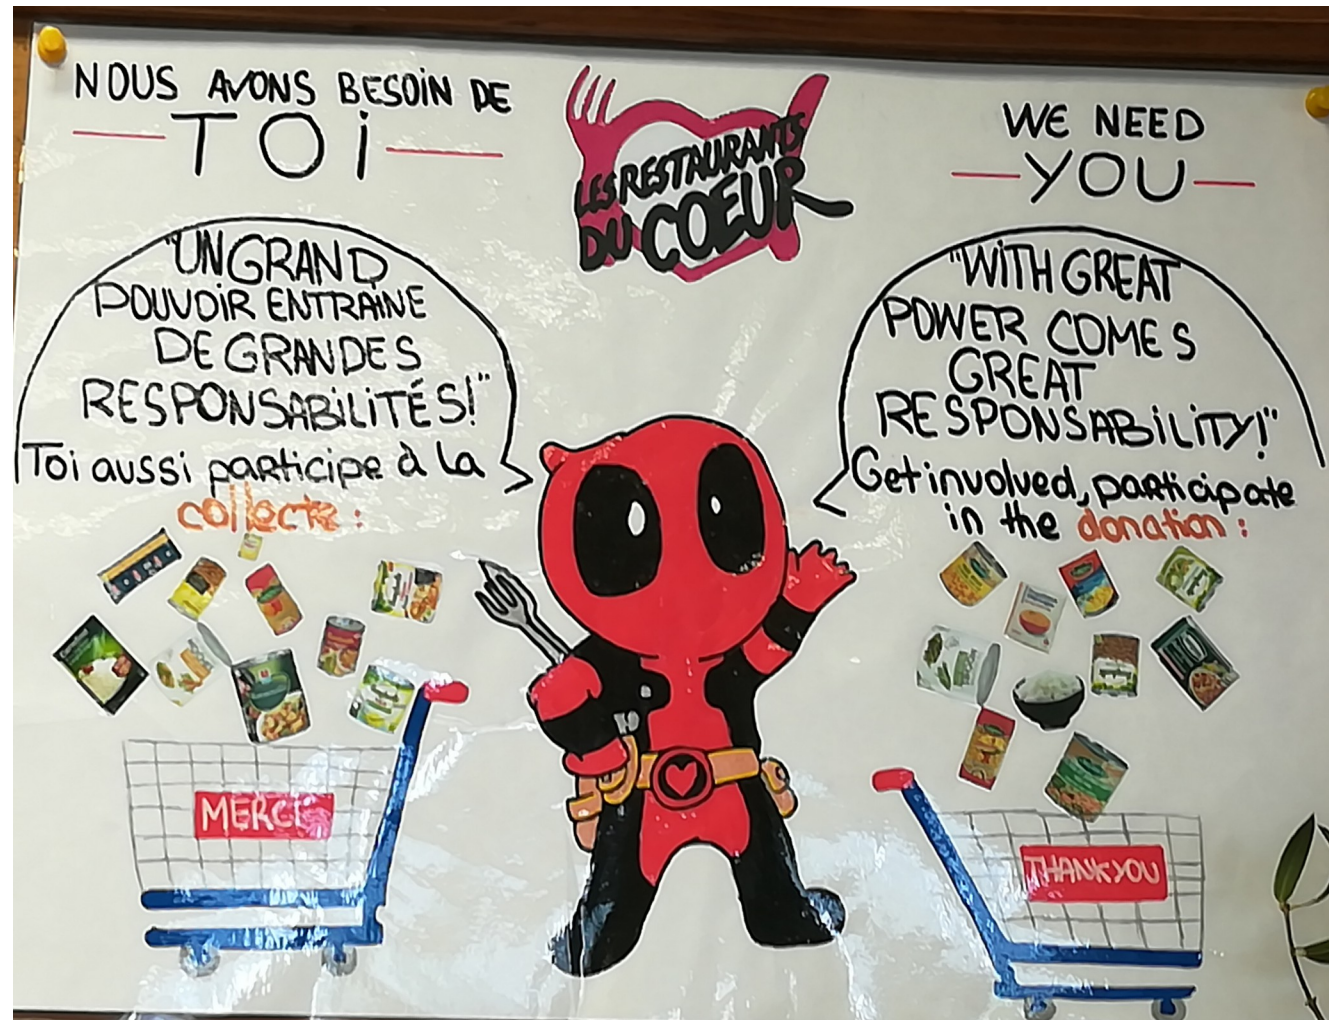 NOUS AVONS BESOIN DE
TOI
LES RESTAURANTS
DU COEUR
WE NEED
YOU
"UN GRAND
POUVOIR ENTRAINE
DE GRANDES
RESPONSABILITÉS!"
Toi aussi participe à la
collecte :
"WITH GREAT
POWER COMES
GREAT
RESPONSABILITY!"
Get involved, participate
in the donation :
MERCI
THANK YOU